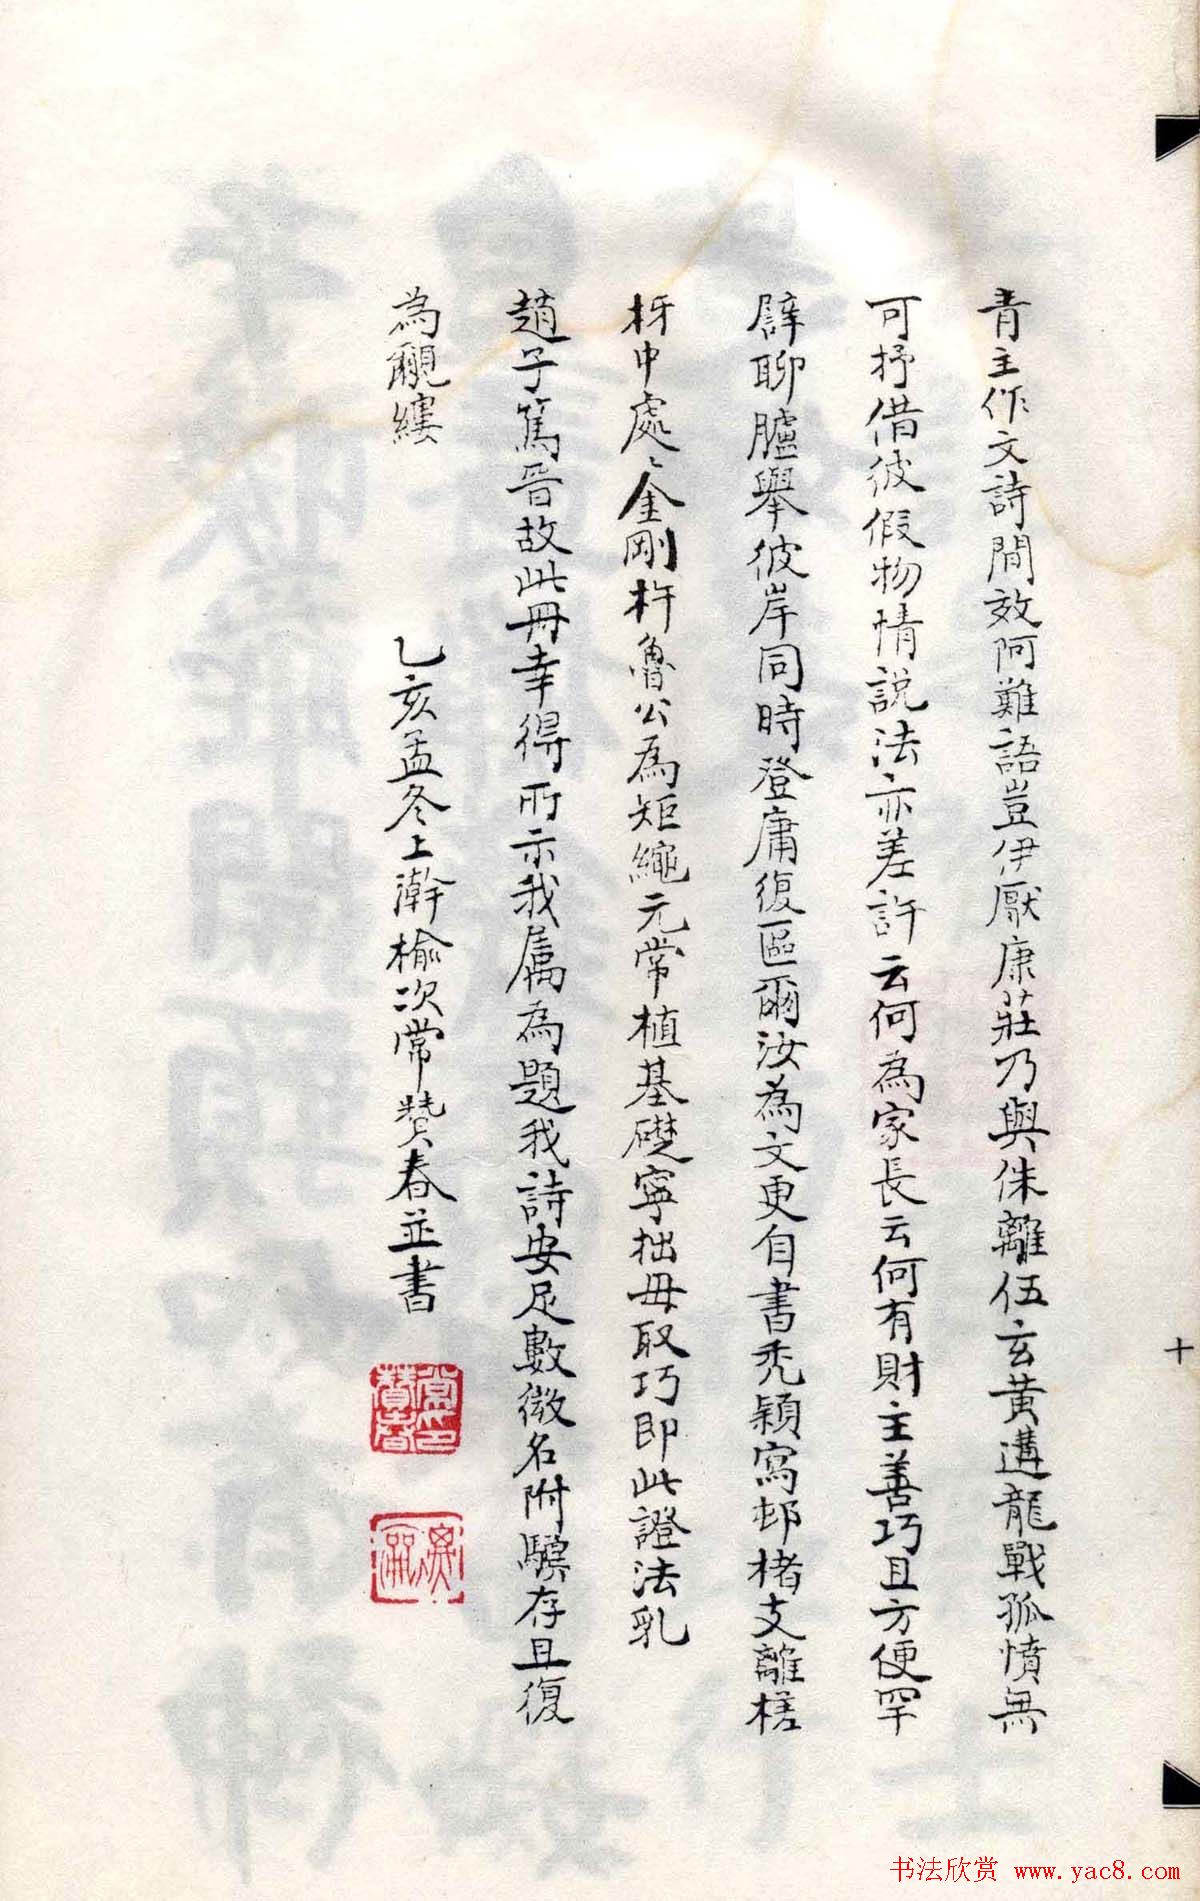 青主作文詩間效阿難語豈伊厭康莊乃與侏離伍玄黃遘龍戰孤憤無
可抒借彼假物情說法亦差許云何為家長云何有財主善巧且方便罕
辟聊臚舉彼岸同時登庸復區爾汝為文更自書禿穎寫邨楮支離槎
枒中處〻金剛杵魯公為矩繩元常植基礎寧拙毋取巧即此證法乳
趙子篤晉故此冊幸得所示我属為題我詩安足數微名附驥存且復
為覼縷
乙亥孟冬上澣榆次常贊春並書
常贊春印
十
书法欣赏 www.yac8.com